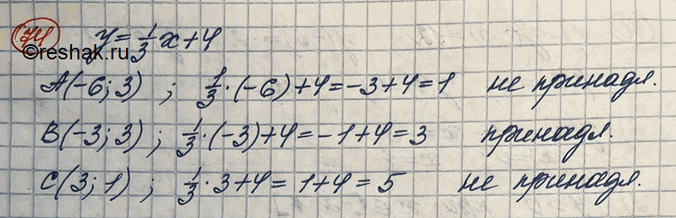 74 y = 1/3 x + 4
©reshak.ru
A(-6; 3) ; 1/3 · (-6) + 4 = -3 + 4 = 1 не принадл.
B(-3; 3) ; 1/3 · (-3) + 4 = -1 + 4 = 3 принадл.
C(3; 1) ; 1/3 · 3 + 4 = 1 + 4 = 5 не принадл.